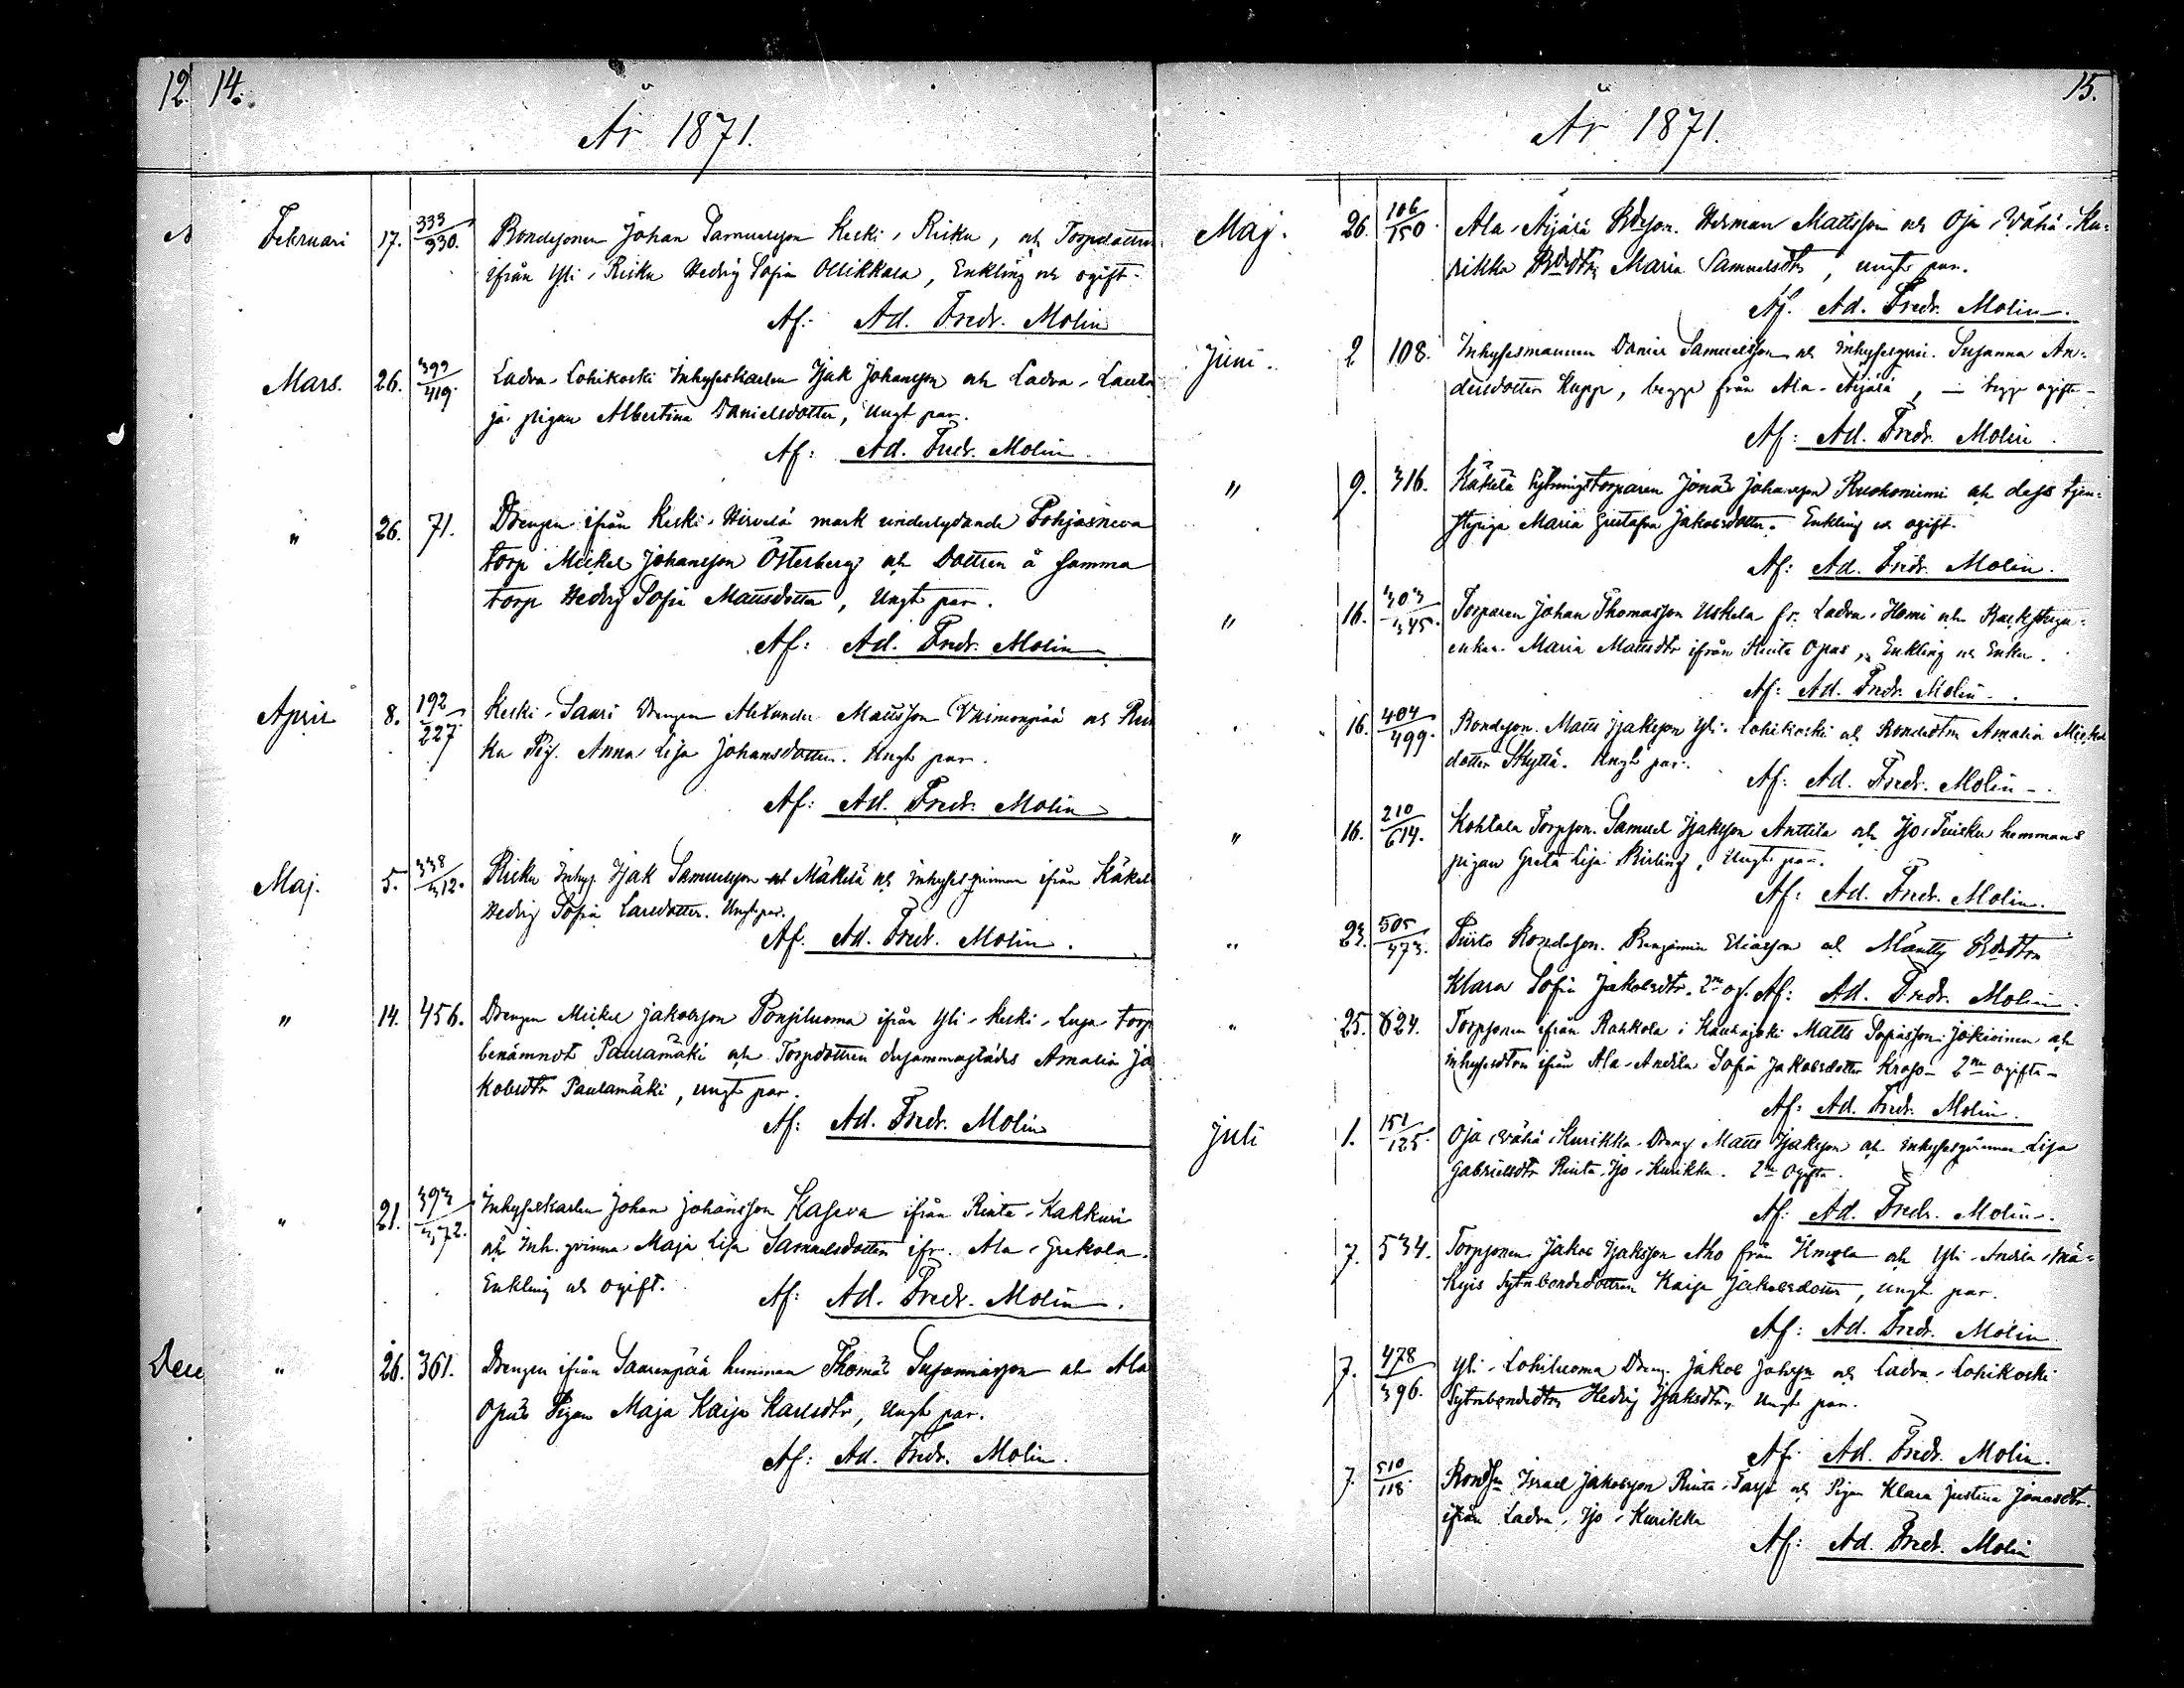 12. 14.
År 1871.
Februari 17. 333/330. Bondesonen Johan Samuelsson Keski-Risku, och Torpdottren
ifrån Yli-Risku Hedvig Sofia Ollikkala, Enkling och ogift.
Af: Ad. Fredr. Molin
Mars. 26. 399/419. Ladva-Lohikoski Inhyseskarlen Isak Johansson och Ladva-Lauta
ja pigan Albertina Danielsdotter, Ungt par.
Af: Ad. Fredr. Molin
" 26. 71. Drengen ifrån Keski-Hirvelä mark underlydande Pohjasneva
torp Mickel Johansson Österberg och Dottren å samma
torp Hedvig Sofia Mattsdotter, Ungt par.
Af: Ad. Fredr. Molin
April 8. 192/227. Keski-Saari Drengen Alexander Mattsson och Ris
ku Pig. Anna Lisa Johansdotter. Ungt par.
Af: Ad. Fredr. Molin
Maj. 5. 338/312. Risku Inhys. Isak Samuelsson Mäkelä och Inhysesqvinnan ifrån Käkel
Hedvig Sofia Larsdotter. Ungt par.
Af. Ad. Fredr. Molin.
" 14. 456. Drengen Mickel Jakobsson Ponsiluoma ifrån Yli-Keski-Luopa torp
benämndt Paulamäki och Torpdottren dersammastädes Amalia Ja
kobsdtr Paulamäki, ungt par.
Af: Ad. Fredr. Molin
" 21. 393/372. Inhyseskarlen Johan Johansson Kaseva ifrån Rinta-Kakkuri
och Inh.qvinna Maja Lisa Samuelsdotter ifr. Ala-Grekola.
Enkling och ogift.
Af: Ad. Fredr. Molin.
" 26. 361. Drengen ifrån Saarenpää hemman Thomas Susannasson och Ala
Opas Pigan Maja Kaisa Karlsdtr, Ungt par.
Af: Ad. Fredr. Molin.
15.
År 1871.
Maj. 26. 106/150. Ala-Äijälä Bdeson. Herman Mattsson och Oja-Vähä-Ku-
rikka Bdedtr. Maria Samuelsdtr, ungt par.
Af. Ad. Fredr. Molin.
Juni. 2 108. Inhysesmannen Daniel Samuelsson och Inhysesqvin. Susanna An-
dersdotter Kuppi, begge från Ala-Äijälä, — begge ogifte—
Af: Ad. Fredr. Molin.
" 9. 316. Käkelä Sytningstorparen Jonas Johansson Ruohoniemi och dess tjen-
stpiga Maria Gustafva Jakobsdotter. Enkling och ogift.
Af: Ad. Fredr. Molin.
" 16. 303/345. Torparen Johan Thomasson Uskela fr. Ladva-Homi och Backstugu-
enkan Maria Mattsdtr ifrån Rinta Opas, Enkling och Enka.
Af: Ad. Fredr. Molin.
" 16. 404/499. Bondeson. Matts Isaksson Yli-Lohikoski och Bondedtrn Amalia Mickels
dotter Skyttä. Ungt par.
Af: Ad. Fredr. Molin.
" 16. 210/614. Kohtala Torpson. Samuel Isaksson Anttila och Iso-Tuisku hemmans
pigan Greta Lisa Birling, Ungt par.
Af: Ad. Fredr. Molin.
" 23. 505/473. Piirto Bondeson. Benjamin Eliasson och Mäntty Bdedtrn
Klara Sofia Jakobsdtr. 2ne og. Af: Ad. Fredr. Molin.
" 25. 624. Torpsonen ifrån Rahkola i Kauhajoki Matts och
Inhysesdtrn ifrån Ala-Andila Sofia Jakobsdotter 2ne ogifta—
Af: Ad. Fredr. Molin.
Juli 1. 151/125. Oja-Vähä-Kurikka Dreng Matts Isaksson och Inhysesqvinnan Lisa
Gabrielsdtr Rinta-Iso-Kurikka. 2ne Ogifta.
Af: Ad. Fredr. Molin.
7. 534. Torpsonen Jakob Isaksson Aho från Ilmola och Yli-Andila-Mä-
Sytn.bondedottren Kaisa Jakobsdotter, ungt par.
Af: Ad. Fredr. Molin.
7. 478/396. Yli-Lohiluoma Dreng. Jakob Johsson och Ladva-Lohikoski
Sytn.bondedtrn Hedvig Isaksdtr, Ungt par.
Af: Ad. Fredr. Molin.
7. 510/118. Bondsn Israel Jakobsson Rinta-Tassi och Pigan Klara Justina Jonasdtr.
ifrån Ladva-Iso-Kurikka
Af: Ad. Fredr. Molin